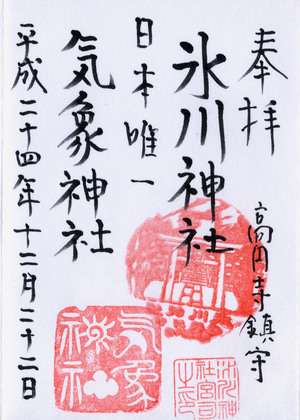 奉拝
高円寺鎮守
氷川神社
日本唯一
気象神社
平成二十四年十二月二十二日
気象
神社